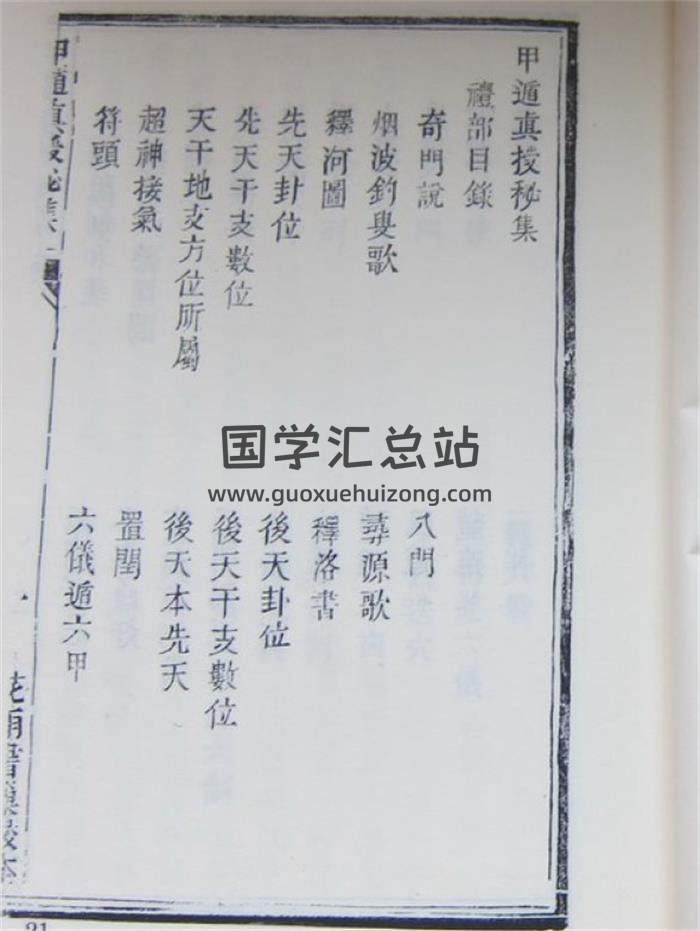 甲遁真授秘集
禮部目錄
奇門說
八門
烟波釣叟歌
尋源歌
釋河圖
釋洛書
先天卦位
後天卦位
先天干支數位
後天干支數位
天干地支方位所屬
後天本先天
超神接氣
置閏
符頭
六儀遁六甲
甲遁真授秘集
一
21
国学汇总站
www.guoxuehuizong.com